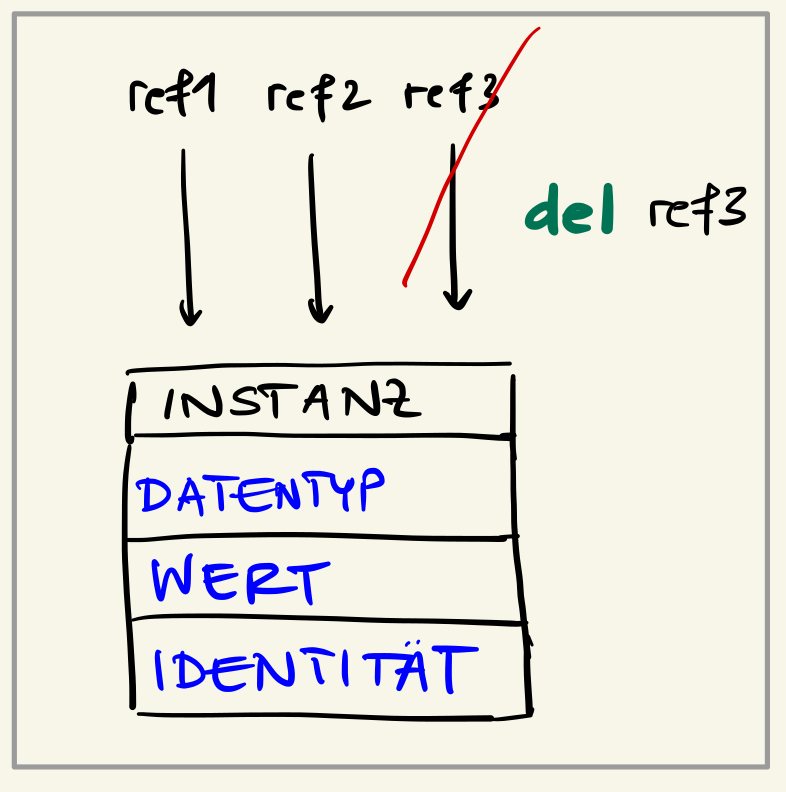 ref1 ref2 ref3
del ref3
INSTANZ
DATENTYP
WERT
IDENTITÄT